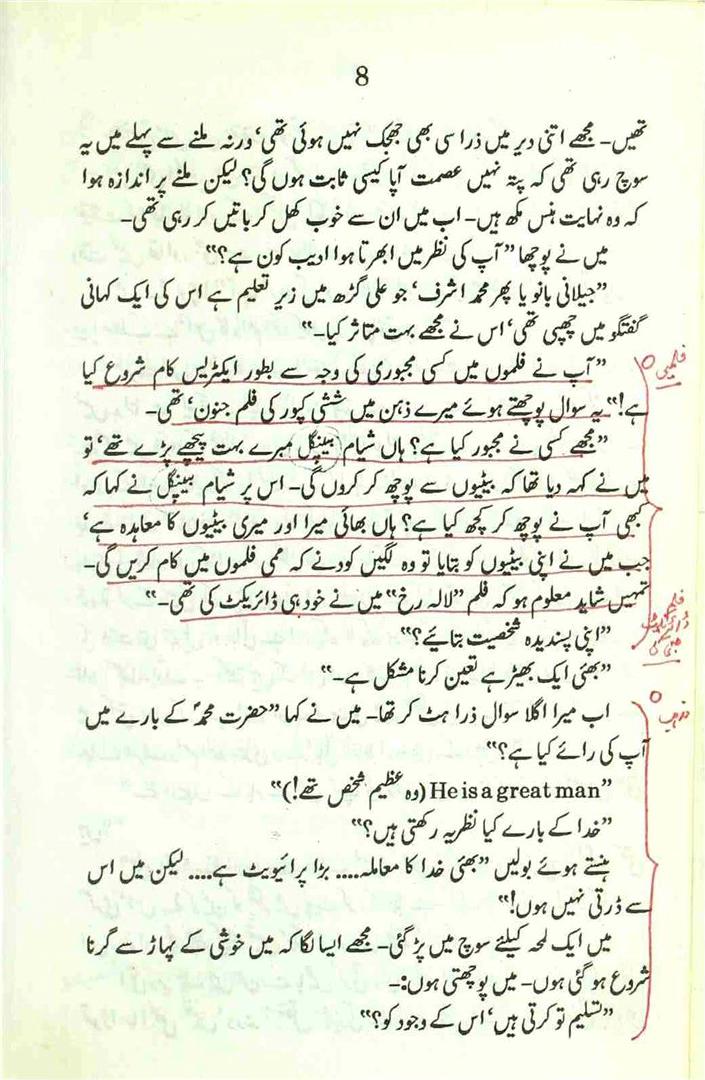 8
تھیں- مجھے اتنی دیر میں ذرا سی بھی جھجک نہیں ہوئی تھی‘ ورنہ ملنے سے پہلے میں یہ
سوچ رہی تھی کہ پتہ نہیں عصمت آپا کیسی ثابت ہوں گی؟ لیکن ملنے پر اندازہ ہوا
کہ وہ نہایت ہنس مکھ ہیں- اب میں ان سے خوب کھل کر باتیں کر رہی تھی-
میں نے پوچھا ”آپ کی نظر میں ابھرتا ہوا ادیب کون ہے؟“
”جیلانی بانو یا پھر محمد اشرف‘ جو علی گڑھ میں زیر تعلیم ہے اس کی ایک کہانی
گفتگو میں چھپی تھی‘ اس نے مجھے بہت متاثر کیا-“
فلمیں
”آپ نے فلموں میں کسی مجبوری کی وجہ سے بطور ایکٹریس کام شروع کیا
ہے!“ یہ سوال پوچھتے ہوئے میرے ذہن میں ششی کپور کی فلم جنون‘ تھی-
”مجھے کسی نے مجبور کیا ہے؟ ہاں شیام بینیگل میرے بہت پیچھے پڑے تھے‘ تو
میں نے کہہ دیا تھا کہ بیٹیوں سے پوچھ کر کروں گی- اس پر شیام بینیگل نے کہا کہ
کبھی آپ نے پوچھ کر کچھ کیا ہے؟ ہاں بھائی میرا اور میری بیٹیوں کا معاہدہ ہے‘
جب میں نے اپنی بیٹیوں کو بتایا تو وہ لگیں کودنے کہ ممی فلموں میں کام کریں گی-
تمہیں شاید معلوم ہو کہ فلم ”لالہ رخ“ میں نے خود ہی ڈائریکٹ کی تھی-“
”اپنی پسندیدہ شخصیت بتائیے؟“
”بھئی ایک بھیڑ ہے تعین کرنا مشکل ہے-“
مذہب
اب میرا اگلا سوال ذرا ہٹ کر تھا- میں نے کہا ”حضرت محمدؐ کے بارے میں
آپ کی رائے کیا ہے؟“
”He is a great man (وہ عظیم شخص تھے!)“
”خدا کے بارے کیا نظریہ رکھتی ہیں؟“
ہنستے ہوئے بولیں ”بھئی خدا کا معاملہ.... بڑا پرائیویٹ ہے.... لیکن میں اس
سے ڈرتی نہیں ہوں!“
میں ایک لمحہ کیلئے سوچ میں پڑ گئی- مجھے ایسا لگا کہ میں خوشی کے پہاڑ سے گرنا
شروع ہو گئی ہوں- میں پوچھتی ہوں:-
”تسلیم تو کرتی ہیں‘ اس کے وجود کو؟“